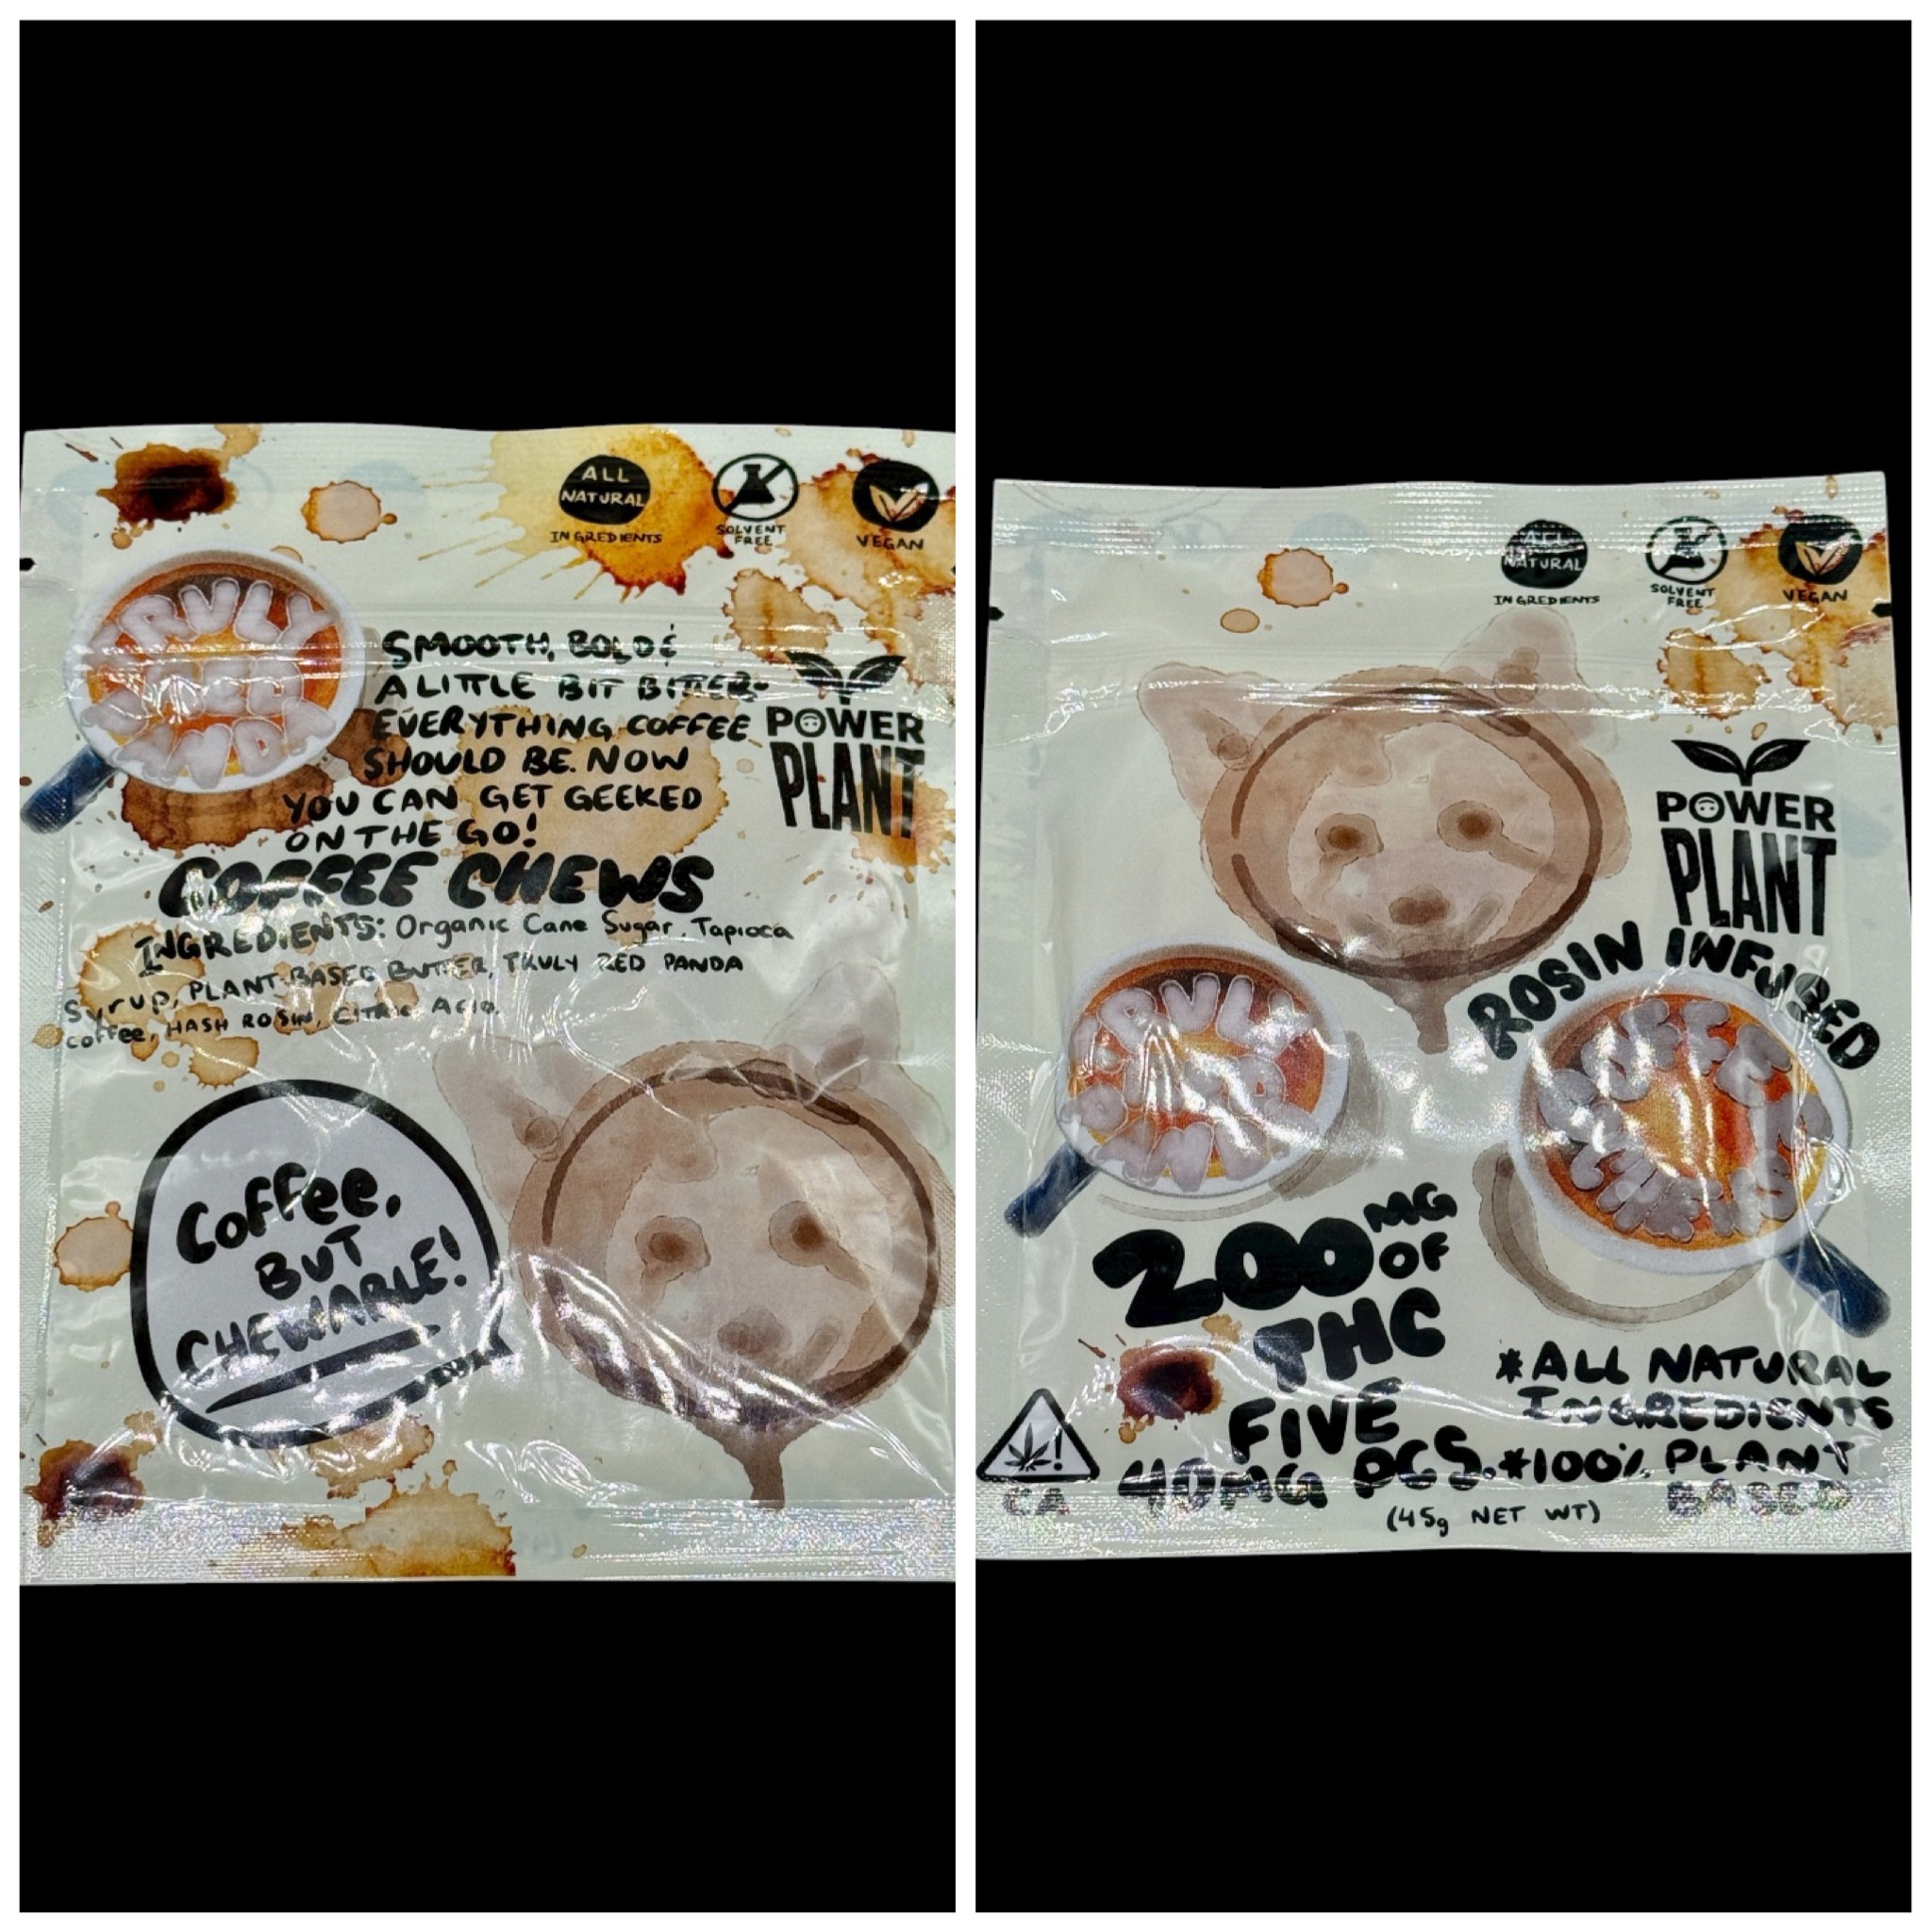 ALL
NATURAL
INGREDIENTS
SOLVENT
FREE
VEGAN
TRULY
RED
PANDA
SMOOTH, BOLD &
A LITTLE BIT BITTER-
EVERYTHING COFFEE
SHOULD BE. NOW
YOU CAN GET GEEKED
ON THE GO!
POWER
PLANT
COFFEE CHEWS
INGREDIENTS: Organic Cane Sugar, Tapioca
Syrup, PLANT-BASED BUTTER, TRULY RED PANDA
Coffee, HASH ROSIN, CITRIC ACID.
Coffee,
BUT
CHEWABLE!
ALL
NATURAL
INGREDIENTS
SOLVENT
FREE
VEGAN
POWER
PLANT
ROSIN INFUSED
TRULY
RED
PANDA
COFFEE
CHEWS
200 MG
OF
THC
FIVE
40MG PCS.
(45g NET WT)
*ALL NATURAL
INGREDIENTS
*100% PLANT
BASED
!
CA